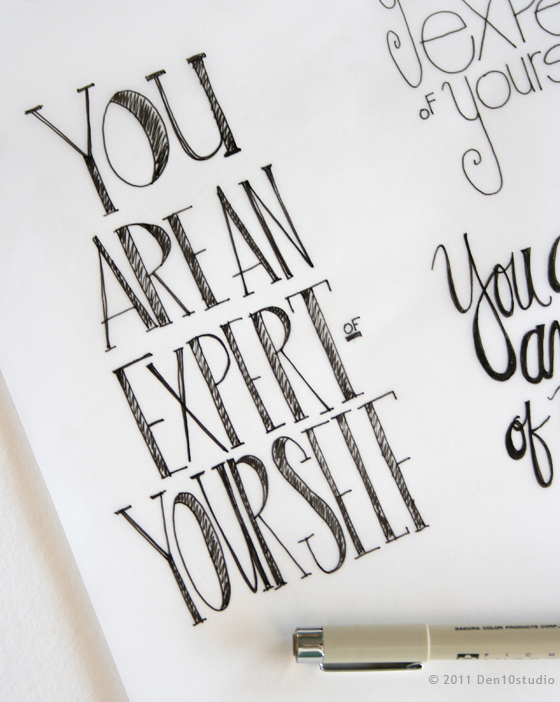 YOU
ARE AN
EXPERT OF
YOURSELF
expe
OF yours
You a
an
of
SAKURA COLOR PRODUCTS CORP.
© 2011 Den10studio